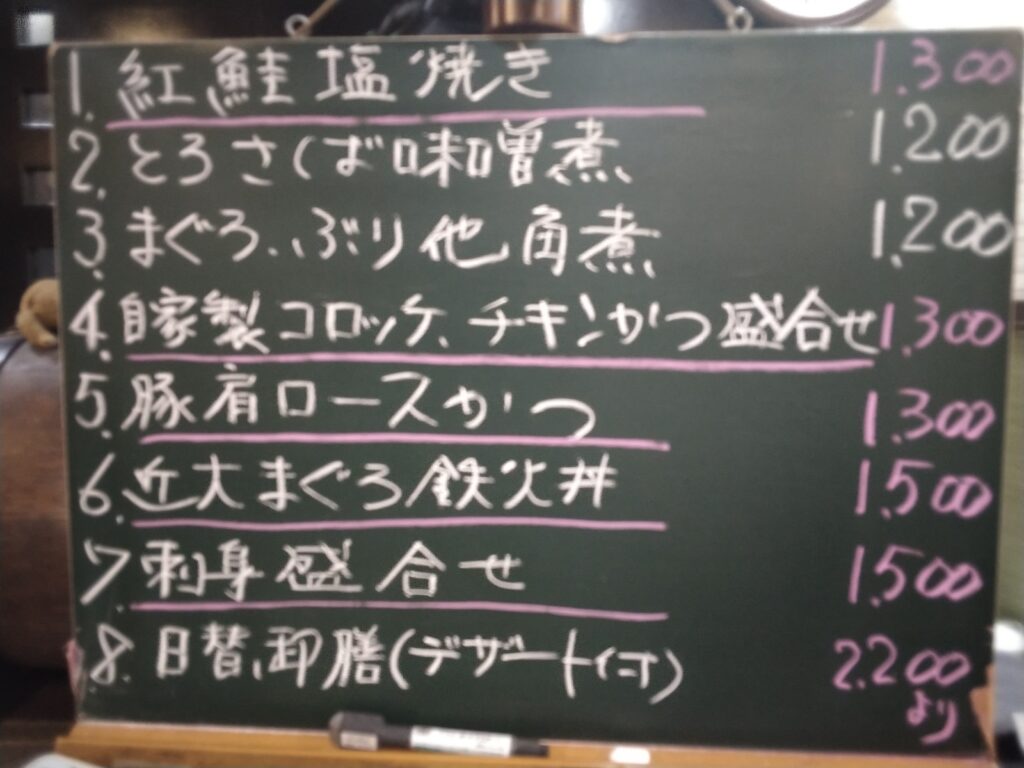 1. 紅鮭塩焼き 1.300
2. とろさば味噌煮 1.200
3. まぐろ、ぶり他角煮 1.200
4. 自家製コロッケ、チキンかつ盛合せ 1.300
5. 豚肩ロースかつ 1.300
6. 近大まぐろ鉄火丼 1.500
7. 刺身盛合せ 1.500
8. 日替、御膳(デザート付) 2.200
より